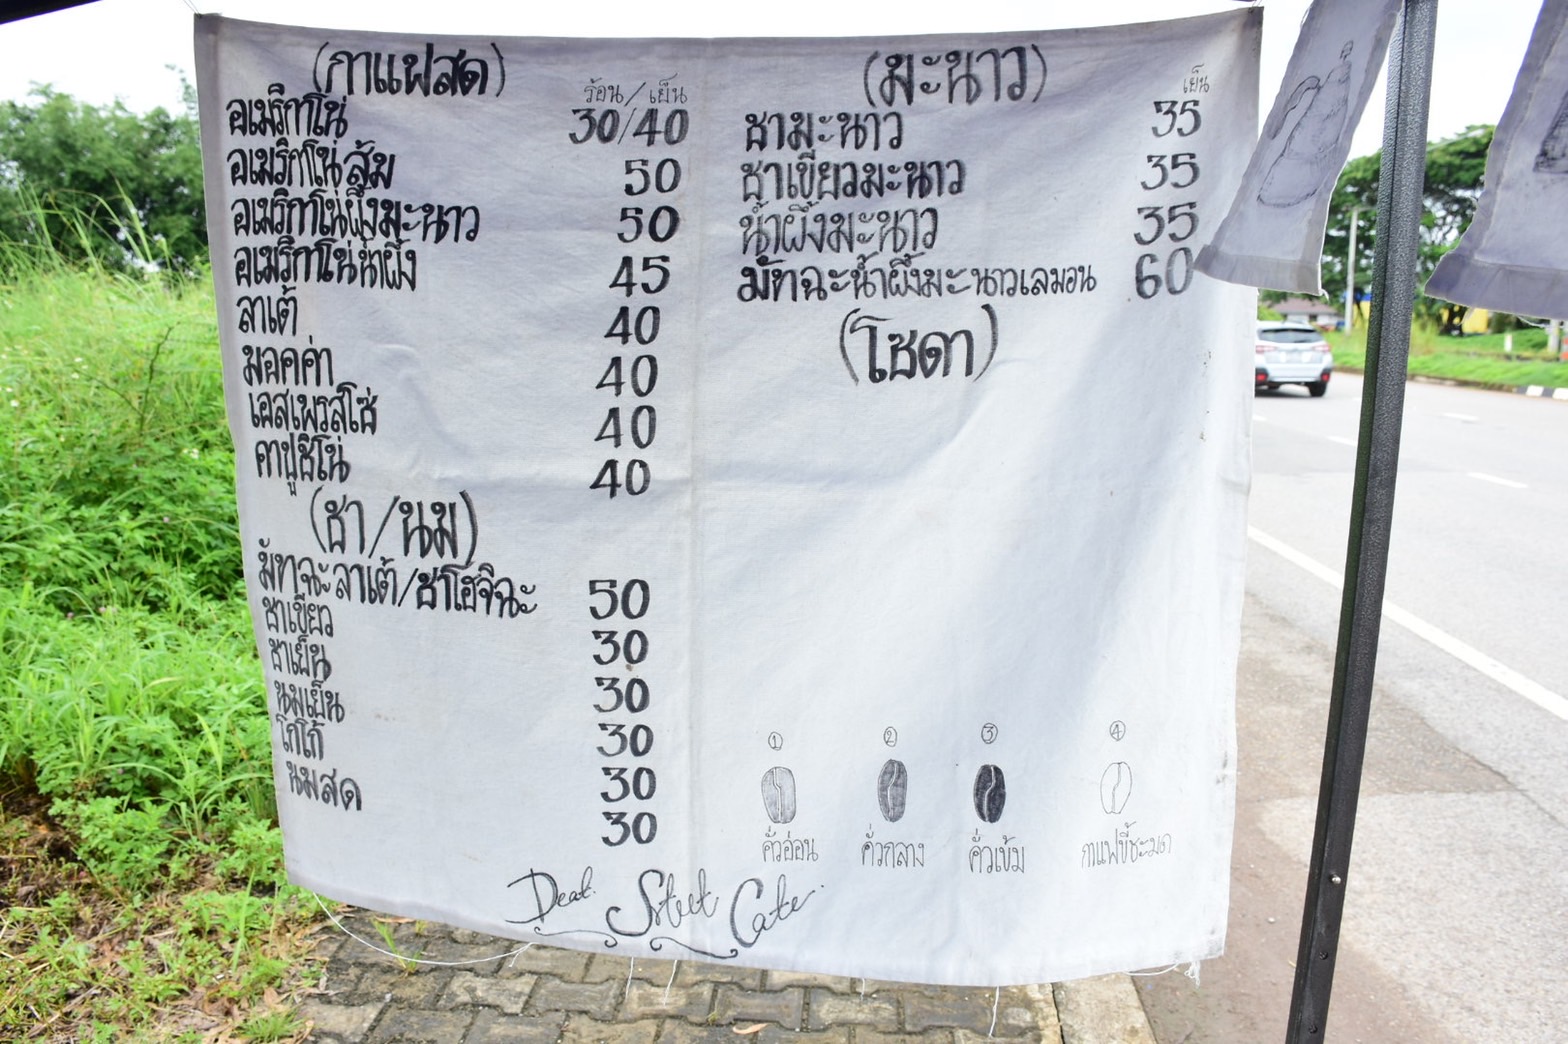 (กาแฟสด)
ร้อน/เย็น
อเมริกาโน่ 30/40
อเมริกาโน่ส้ม 50
อเมริกาโน่ผึ้งมะนาว 50
อเมริกาโน่น้ำผึ้ง 45
ลาเต้ 40
มอคค่า 40
เอสเพรสโซ่ 40
คาปูชิโน่ 40
(ชา/นม)
มัทฉะลาเต้/ชาโฮจิฉะ 50
ชาเขียว 30
ชาเย็น 30
นมเย็น 30
โกโก้ 30
นมสด 30
(มะนาว)
เย็น
ชามะนาว 35
ชาเขียวมะนาว 35
น้ำผึ้งมะนาว 35
มัทฉะน้ำผึ้งมะนาวเลมอน 60
(โซดา)
① ② ③ ④
คั่วอ่อน คั่วกลาง คั่วเข้ม กาแฟขี้ชะมด
Dead Street Cafe